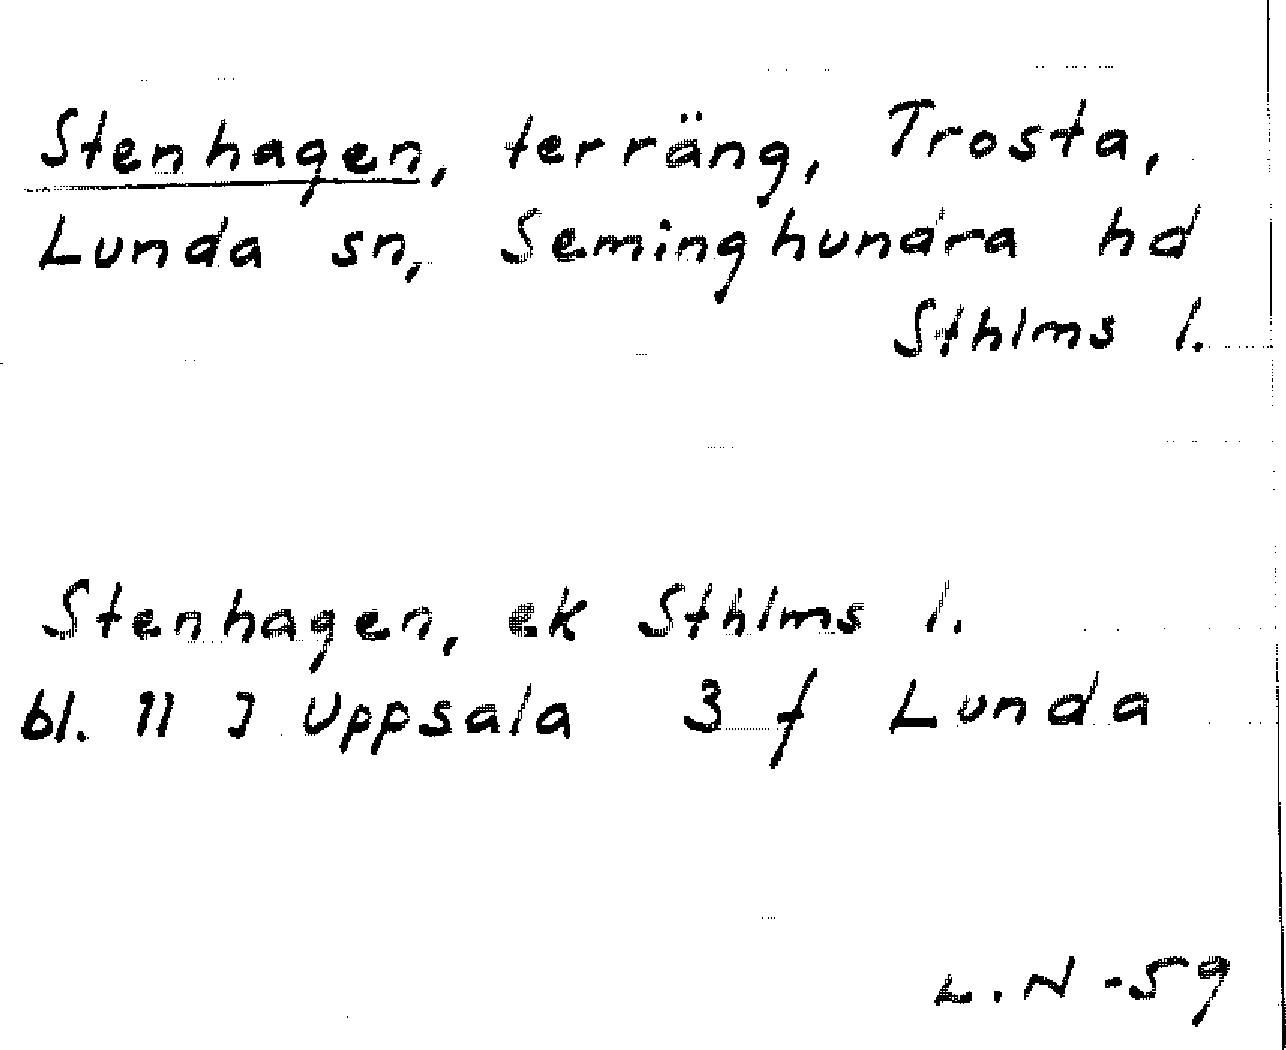 Stenhagen, terräng, Trosta,
Lunda sn, Seminghundra hd
Sthlms l.
Stenhagen, ek Sthlms l.
bl. 11 I Uppsala 3 f Lunda
L. N -59